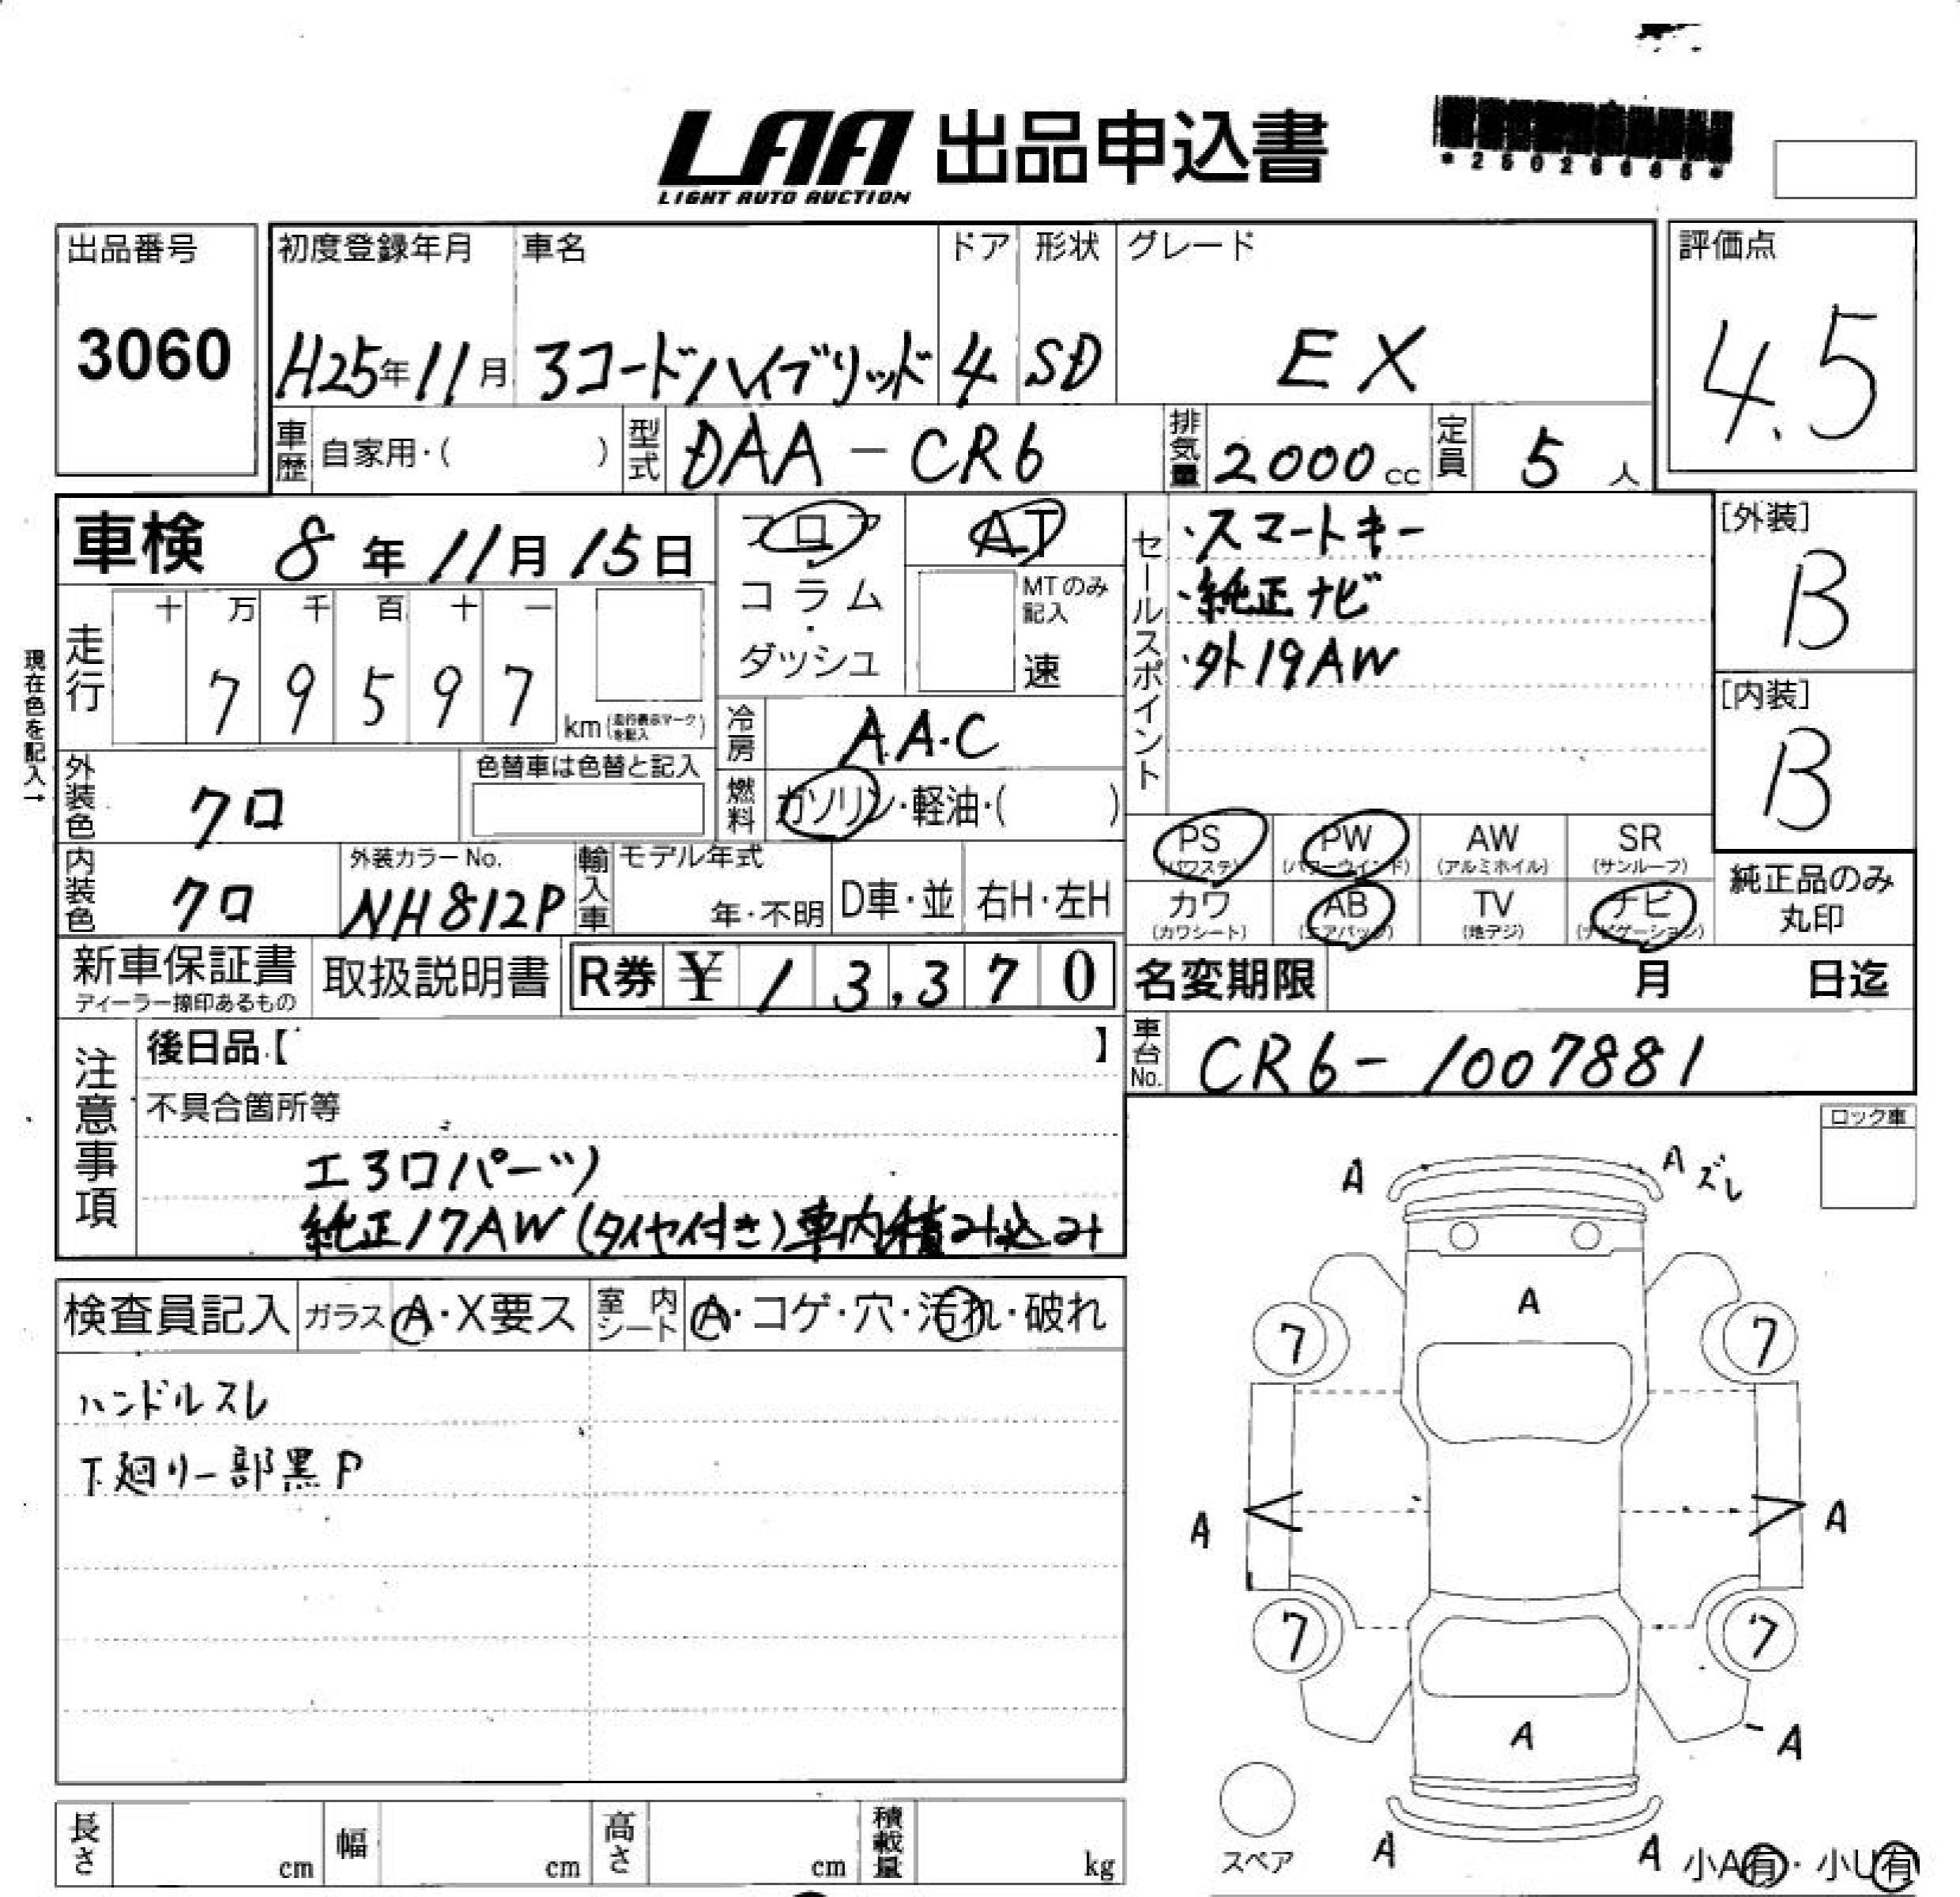 LAA 出品申込書
LIGHT AUTO AUCTION
出品番号
3060
初度登録年月
H25年11月
車名
アコードハイブリッド
ドア
4
形状
SD
グレード
EX
評価点
4.5
車歴 自家用・( )
型式 DAA-CR6
排気量 2000cc
定員 5人
車検 8年11月15日
フロア
コラム
・
ダッシュ
AT
MTのみ
記入
速
セールスポイント
・スマートキー
・純正ナビ
・外19AW
[外装]
B
[内装]
B
現在色を記入→
走行
十 万 千 百 十 一
7 9 5 9 7 km(走行表示マークを記入)
冷房 AA.C
燃料 ガソリン・軽油・( )
外装色 クロ
色替車は色替と記入
内装色 クロ
外装カラーNo.
NH812P
輸入車 モデル年式
年・不明
D車・並
右H・左H
PS (パワステ)
PW (パワーウインド)
AW (アルミホイル)
SR (サンルーフ)
カワ (カワシート)
AB (エアバッグ)
TV (地デジ)
ナビ (ナビゲーション)
純正品のみ
丸印
新車保証書
ディーラー捺印あるもの
取扱説明書
R券 ¥ 1 3,3 7 0
名変期限 月 日迄
車台No. CR6-1007881
注意事項
後日品【 】
不具合箇所等
エアロパーツ
純正17AW(タイヤ付き)車内積み込み
ロック車
検査員記入
ガラス A・X要ス
室内シート A・コゲ・穴・汚れ・破れ
ハンドルスレ
下廻リ一部黒P
A
A ズレ
A
7
7
A
A
7
7
A
A
スペア
A
A
小A有・小U有
長さ cm
幅 cm
高さ cm
積載量 kg